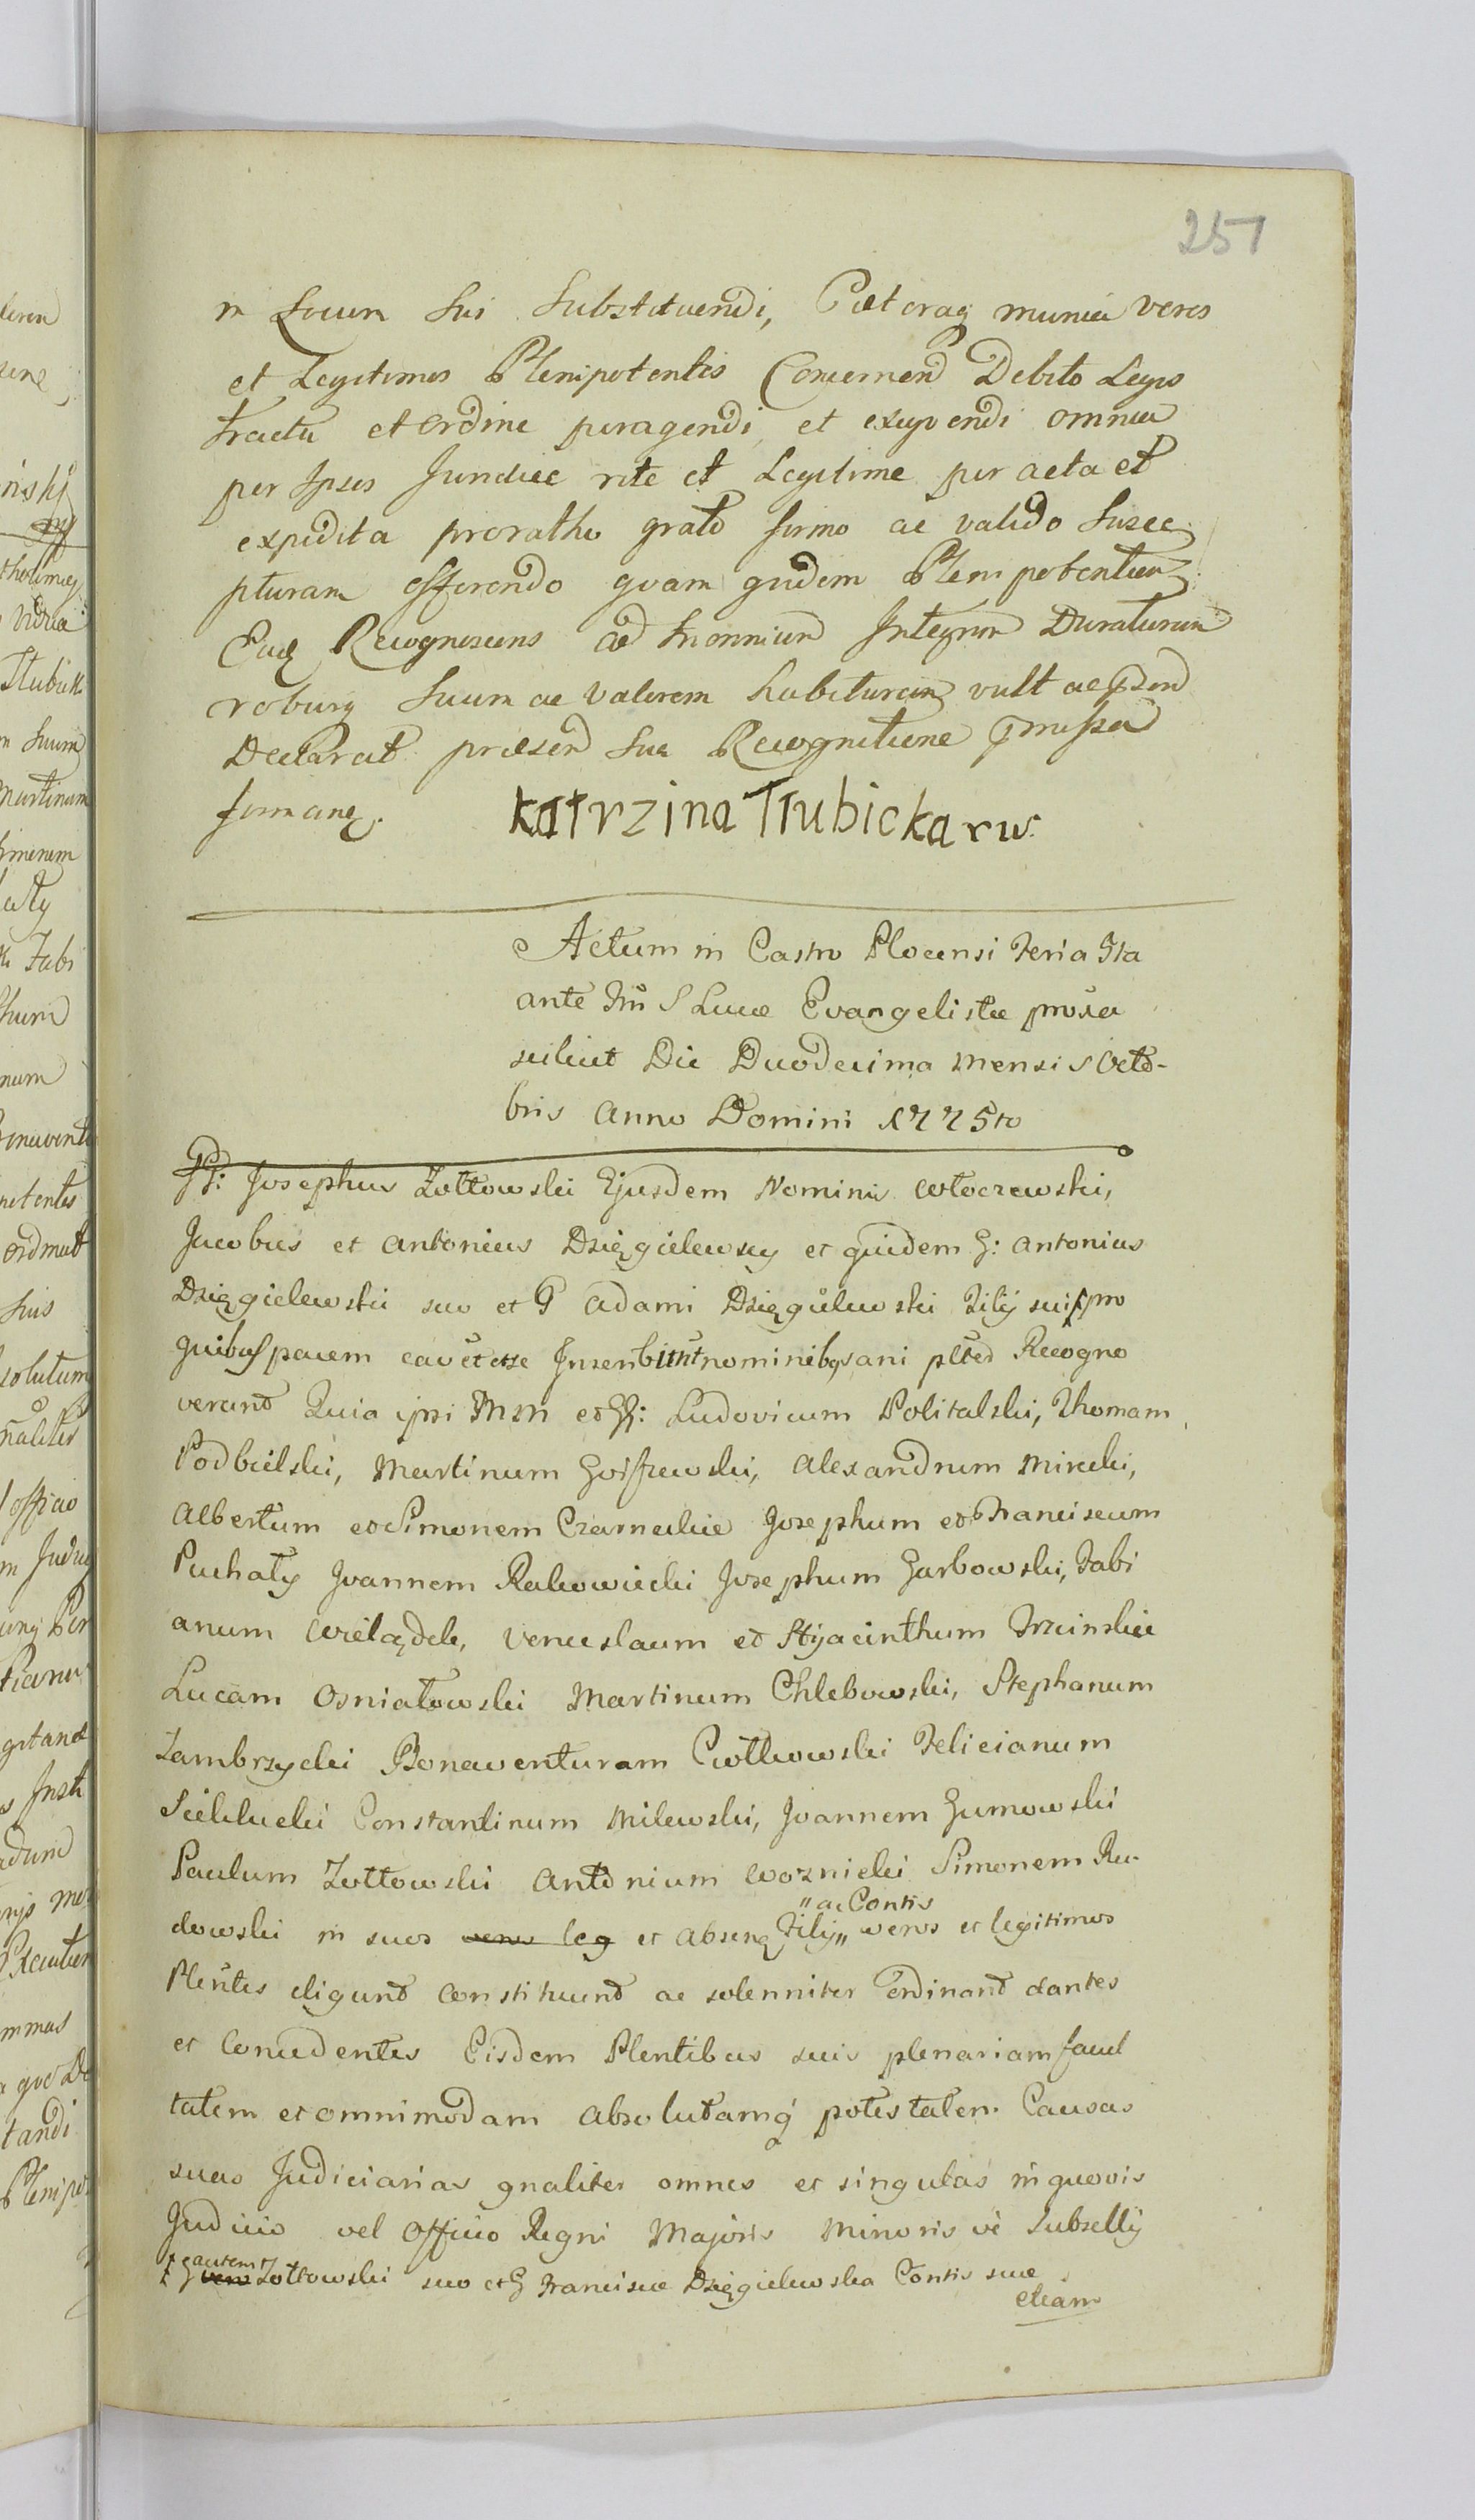 251
in Locum Sui Substituendi, Cæteraq munia veros
et Legitimos Plenipotentes Concernen Debito Legis
tractu et ordine peragendi et exequendi omnia
per Ipsos Juridice rite et Legitime per acta et
expedita proratho grato firmo ac valido Susce
pturam offerendo quam quidem Plenipotentiam
Eadq Recognoscens ad In omnium Integrum Duraturam
roburq Suum ac Valorem habituram vult ac
Declarat præsen Sua Recognitione pmissa
formanq.
Katrzina Trubicka rw.
Actum in Castro Plocensi Feria 5ta
ante Fm S Lucæ Evangelistæ proxa
scilicet Die Duodecima Mensis Octo-
bris Anno Domini 1775to
Josephus Zołtowski Ejusdem Nominis Włoczewski,
Jacobus et Antonius Dzięgielewscy et quidem G: Antonius
Dzięgielewski suo et G Adami Dzięgielewski Filij sui pro
quibus nominibus ani plted Recogno
verunt Quia ipsi Mm et GG: Ludovicum Politalski, Thomam
Podbielski, Martinum Goiszewski, Alexandrum Mirecki,
Albertum et Simonem Czarneckie Josephum et Franciscum
Puchały Joannem Rakowiecki Josephum Garbowski, Fabi
anum Wielądek, Venceslaum et Hyacinthum Trzcinskie
Lucam Osniałowski Martinum Chlebowski, Stephanum
Zambrzycki Bonaventuram Ciołkowski Felicianum
Sieklucki Constantinum Milewski, Joannem Gumowski
Paulum Zołtowski Antonium Woznicki Simonem Ru-
"ac Contis
dowski in suos veros leg et absenq Filij" veros et legitimos
Plentes eligunt constituunt ac solenniter Ordinant dantes
et Concedentes Eisdem Plentibus suis plenariam facul
tatem et omnimodam absolutamq potestatem Causas
suas Judiciarias gnaliter omnes et singulas in quovis
Judicio vel Officio Regni Majoris Minoris ve Subsellij
autem
G vero Zołtowski suo et G Franciscæ Dzięgielewska Contis suæ
etiam